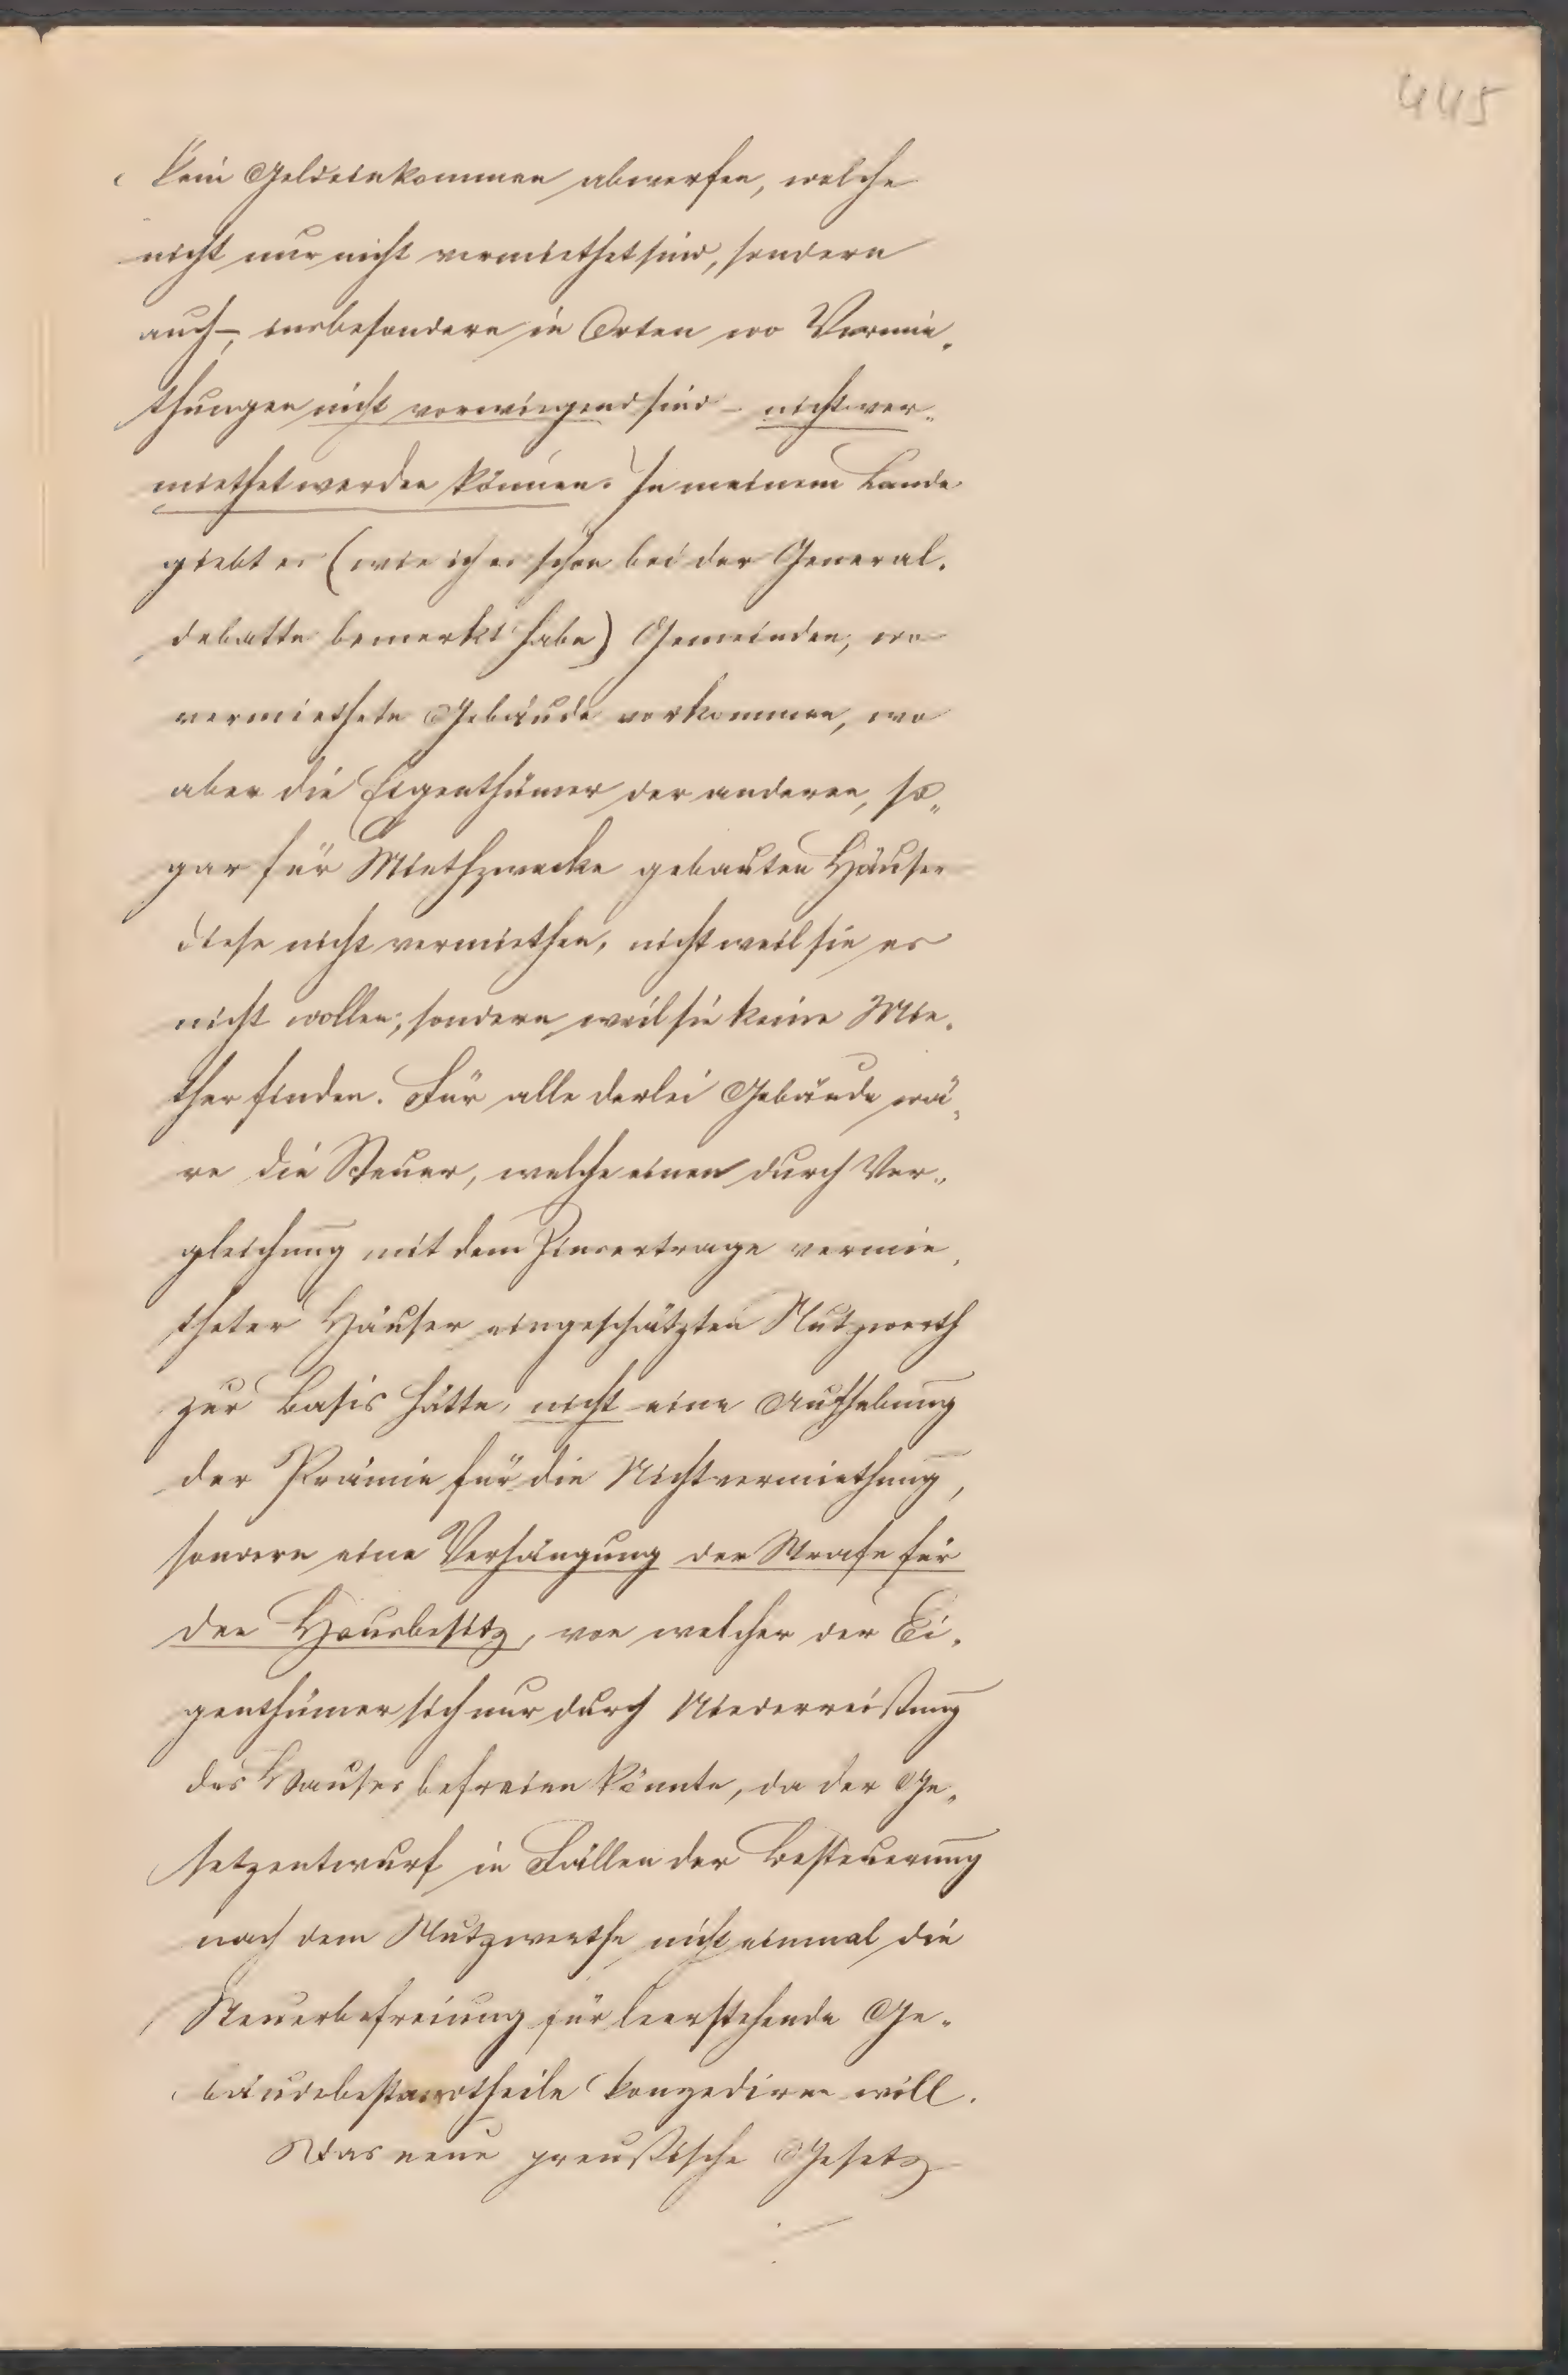 445
kein Geldeinkommen abwerfen, welche
nicht nur nicht vermiethet sind, sondern
auch –, insbesondere in Orten wo Vermie-
thungen nicht vorwiegend sind – nicht ver-
miethet werden können. In meinem Lande
giebt es (wie ich es schon bei der General-
debatte bemerkt habe) Gemeinden, wo
vermiethete Gebäude vorkommen, wo
aber die Eigenthümer der anderen, so-
gar für Miethzwecke gebauten Häuser
diese nicht vermiethen, nicht weil sie es
nicht wollen, sondern weil sie keine Mie-
ther finden. Für alle derlei Gebäude wä-
re die Steuer, welche einen durch Ver-
gleichung mit dem Zinsertrage vermie-
theter Häuser eingeschätzten Nutzwerth
zur Basis hätte, nicht eine Aufhebung
der Prämie für die Nichtvermiethung,
sondern eine Verhängung der Strafe für
den Hausbesitz, von welcher der Ei-
genthümer sich nur durch Niederreißung
des Hauses befreien könnte, da der Ge-
setzentwurf in Fällen der Besteuerung
nach dem Nutzwerthe nicht einmal die
Steuerbefreiung für leerstehende Ge-
bäudebestandtheile konzediren will.
Das neue preußische Gesetz
./.